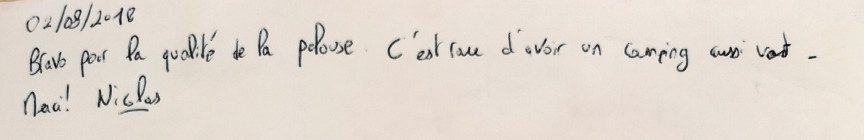 02/08/2018
Bravo pour la qualité de la pelouse. C'est rare d'avoir un camping aussi vert.
Merci! Nicolas